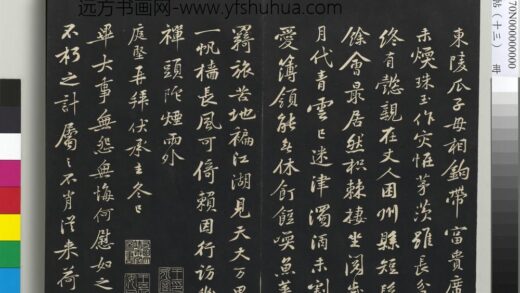 远方书画网 www.yfshuhua.com
東陵瓜子母相鉤帶富貴
未燠珠玉作灾怪茅茨雖長
終有懿親在丈人困州縣短
餘會最居然枳棘棲坐閱歲
月代青雲已迷津濁酒未割
愛簿領能無休飣餖喚魚菜
羇旅苦地褊江湖見天大万里
一帆檣長風可倚賴因行訪幽
禪頭陀煙雨外
庭堅再拜伏承去冬已
畢大事無怨無悔何慰如之
不朽之計屬之不肖從来荷
70N000000000
帖（十三） 冊